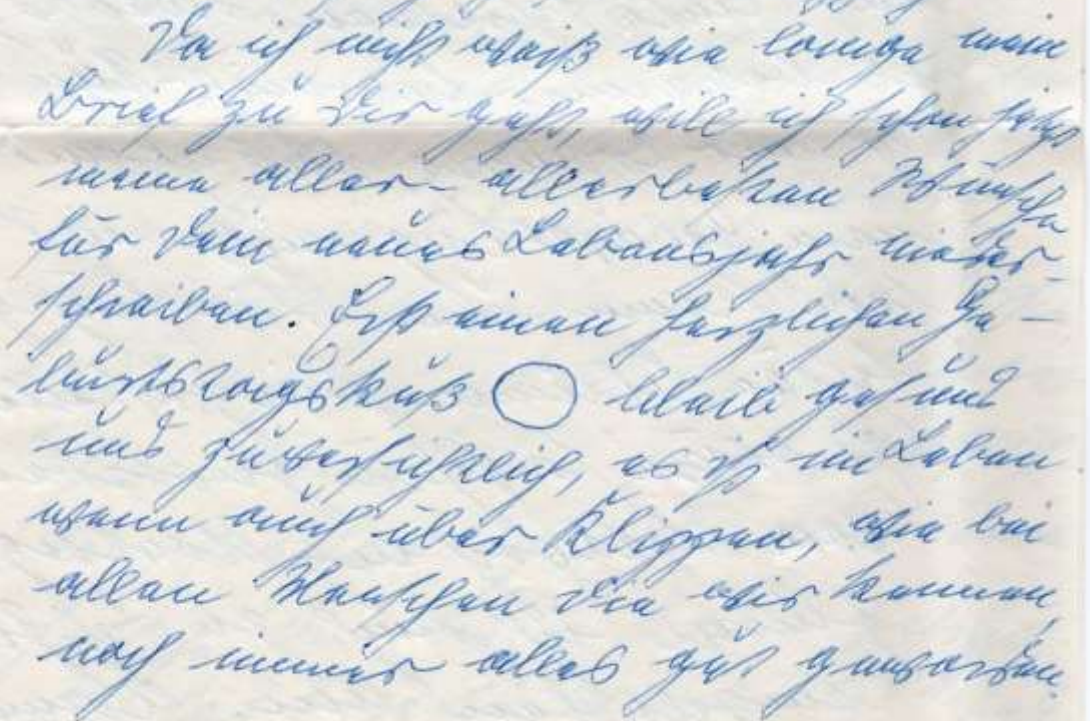 Da ich nicht weiß wie lange mein
Brief zu Dir geht, will ich schon jetzt
meine aller- allerbesten Wünsche
für Dein neues Lebensjahr nieder-
schreiben. Erst einen herzlichen Ge-
burtstagskuß bleib gesund
und zuversichtlich, es ist im Leben
wenn auch über Klippen, wie bei
allen Menschen die wir kennen,
noch immer alles gut geworden.